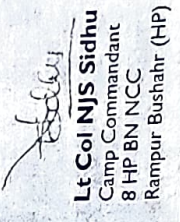 Lt Col NJS Sidhu
Camp Commandant
8 HP BN NCC
Rampur Bushahr (HP)